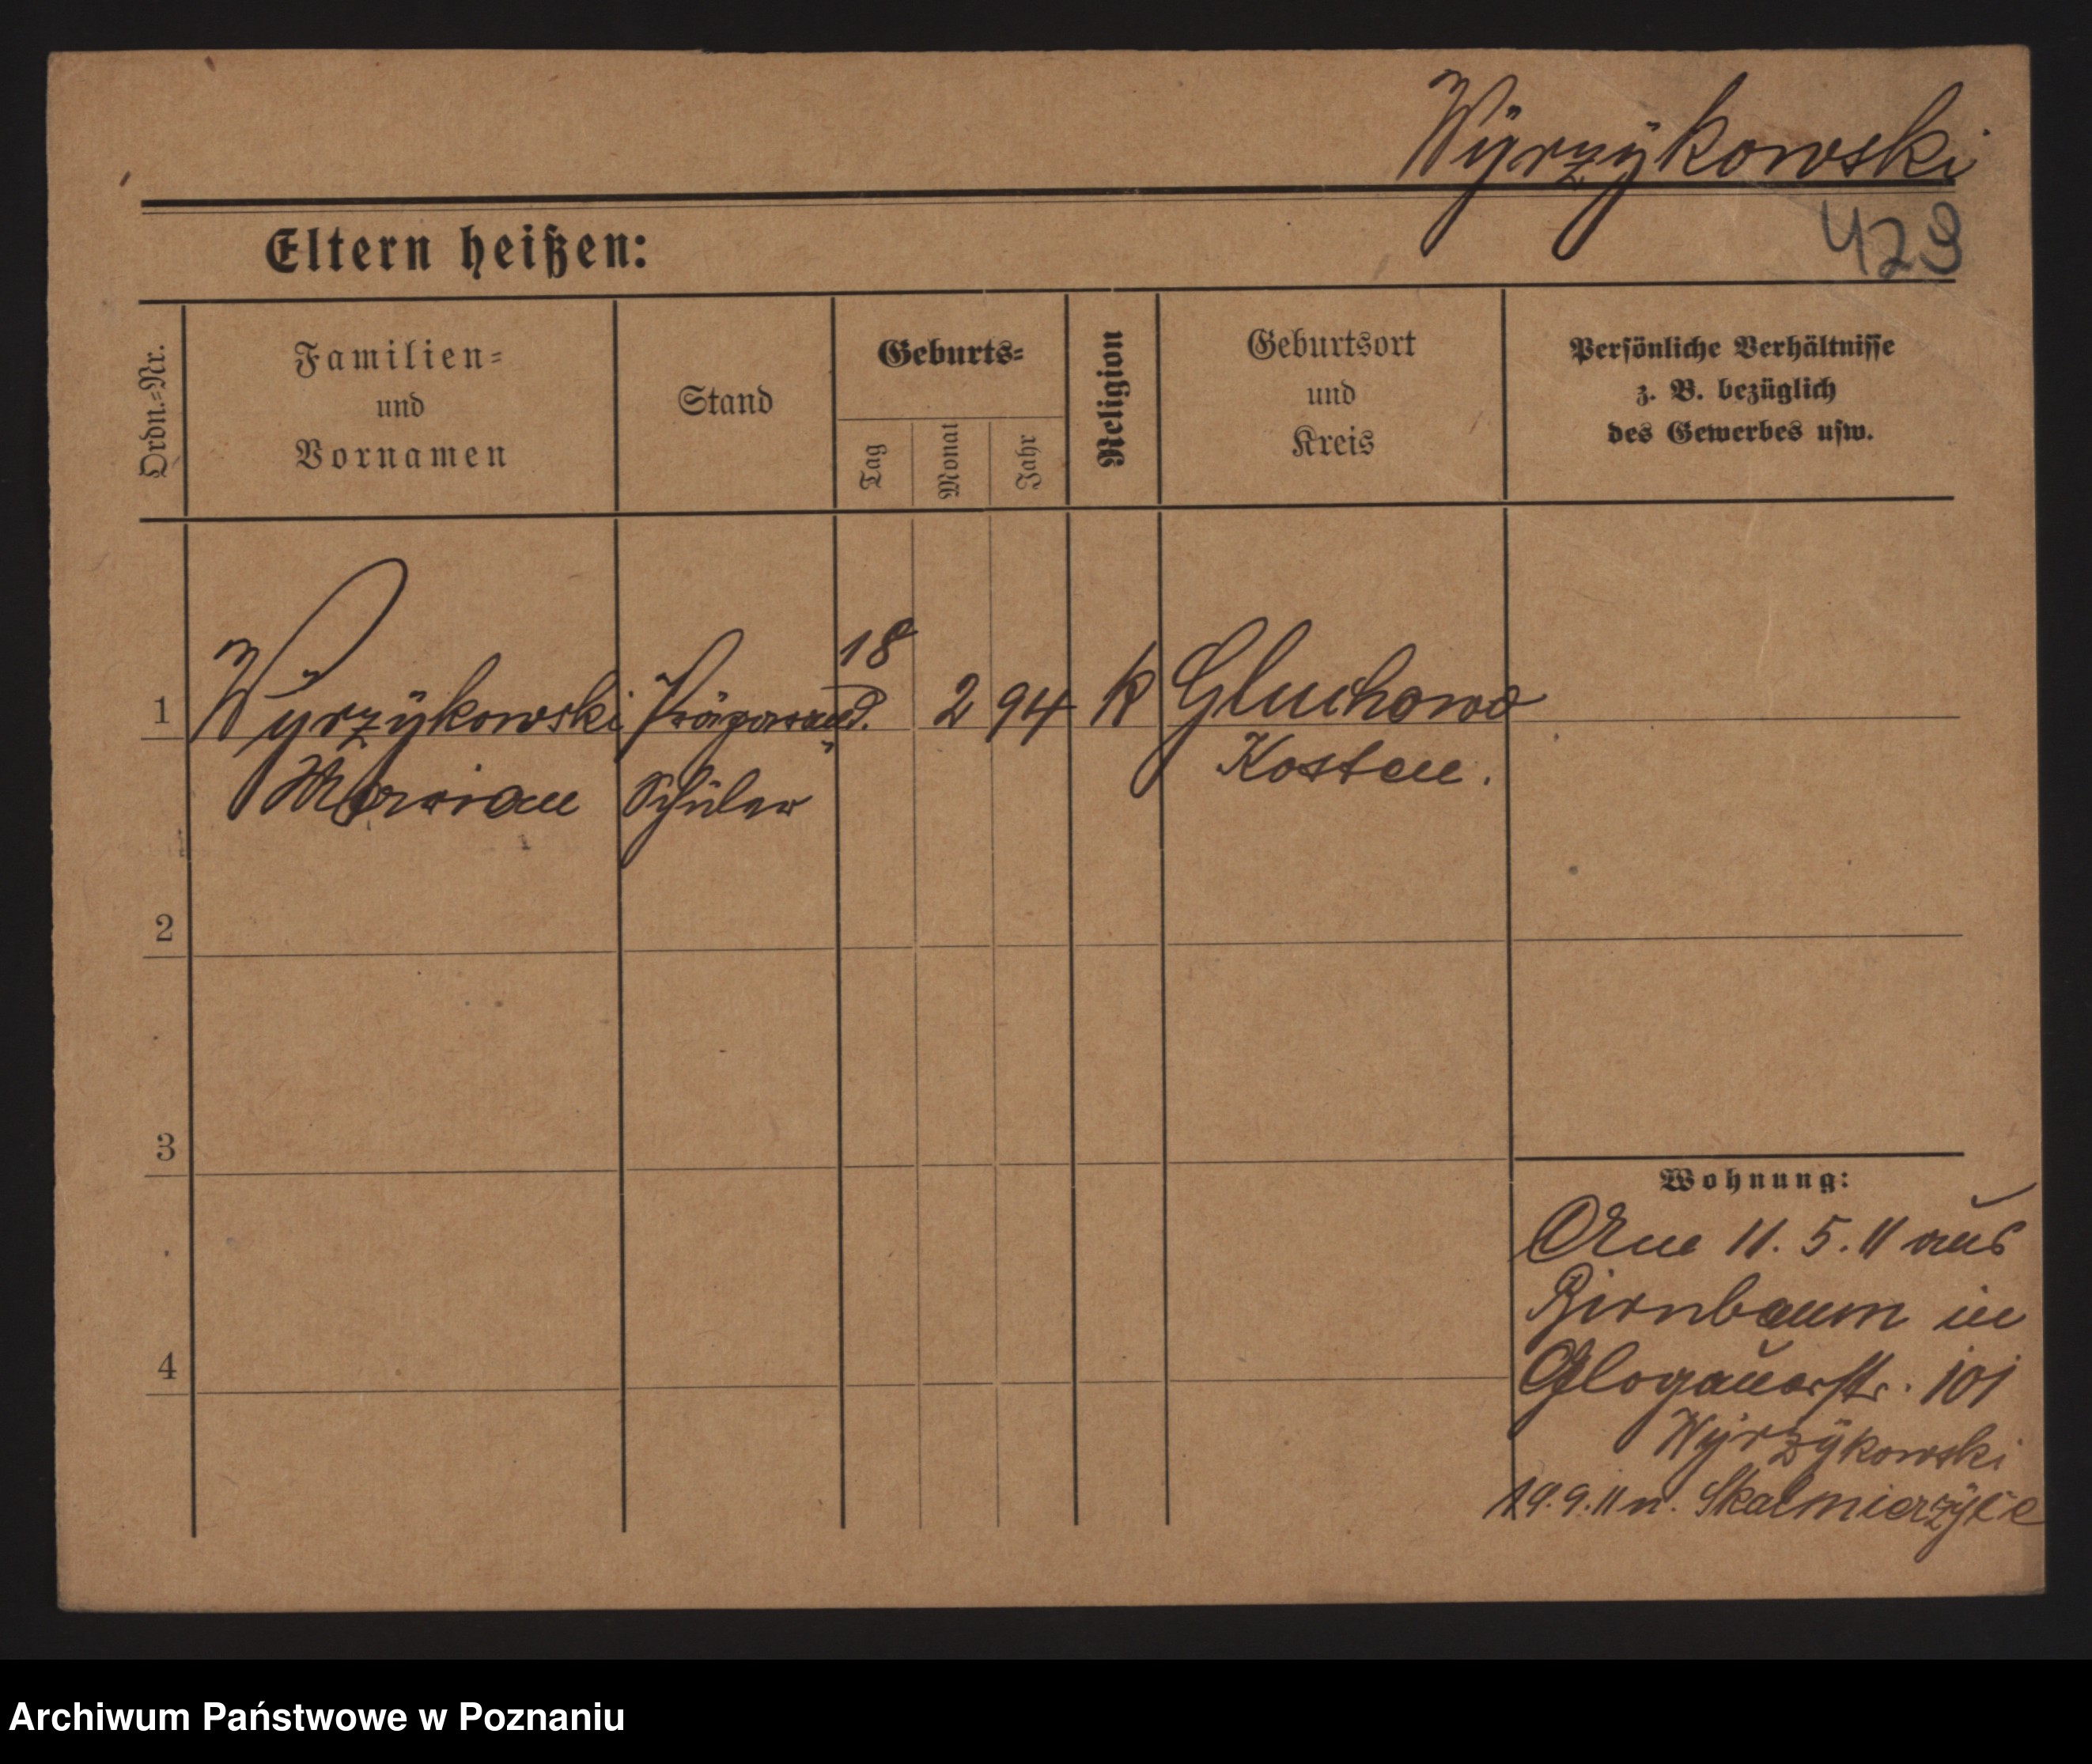 Wÿrzÿkowski
423
Eltern heißen:
Ordn.-Nr.
Familien-
und
Vornamen
Stand
Geburts-
Tag
Monat
Jahr
Religion
Geburtsort
und
Kreis
Persönliche Verhältnisse
z. B. bezüglich
des Gewerbes usw.
1
Wÿrzÿkowski
Marian
Präparand.
Schüler
18
2
94
k
Gluchowo
Kosten.
2
3
4
Wohnung:
11. 5. 11 aus
Birnbaum in
Glogauerstr. 101
Wÿrzÿkowski
19. 9. 11 n. Skalmierzÿce
Archiwum Państwowe w Poznaniu